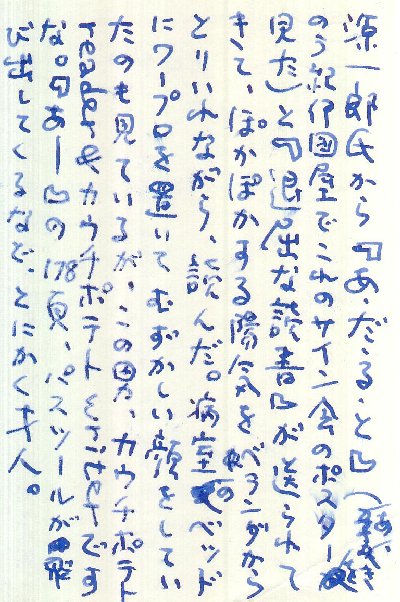 源一郎氏から『あ・だ・る・と』（き
のう紀伊國屋でこれのサイン会のポスター
見た）と『退屈な読書』が送られて
きて、ぽかぽかする陽気をベランダから
とりいれながら、読んだ。病室のベッド
にワープロを置いてむずかしい顔をしてい
たのも見ているが、この男、カウチポテト
reader カウチポテト です
な。『あー』の178頁、パスツールが飛
び出してくるなど、とにかく才人。